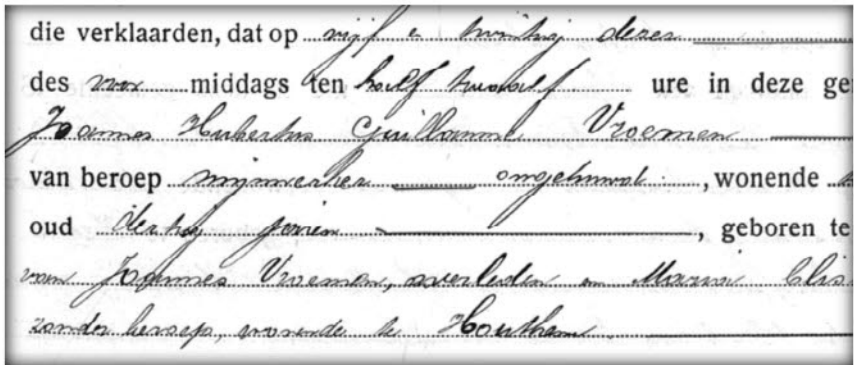 die verklaarden, dat op vijf en twintig dezer
des voor middags ten half twaalf ure in deze ge
Joannes Hubertus Guillaume Vroemen
van beroep mijnwerker ongehuwd, wonende
oud dertig jaren, geboren te
van Joannes Vroemen, overleden en Maria Elis
zonder beroep, wonende te Houthem